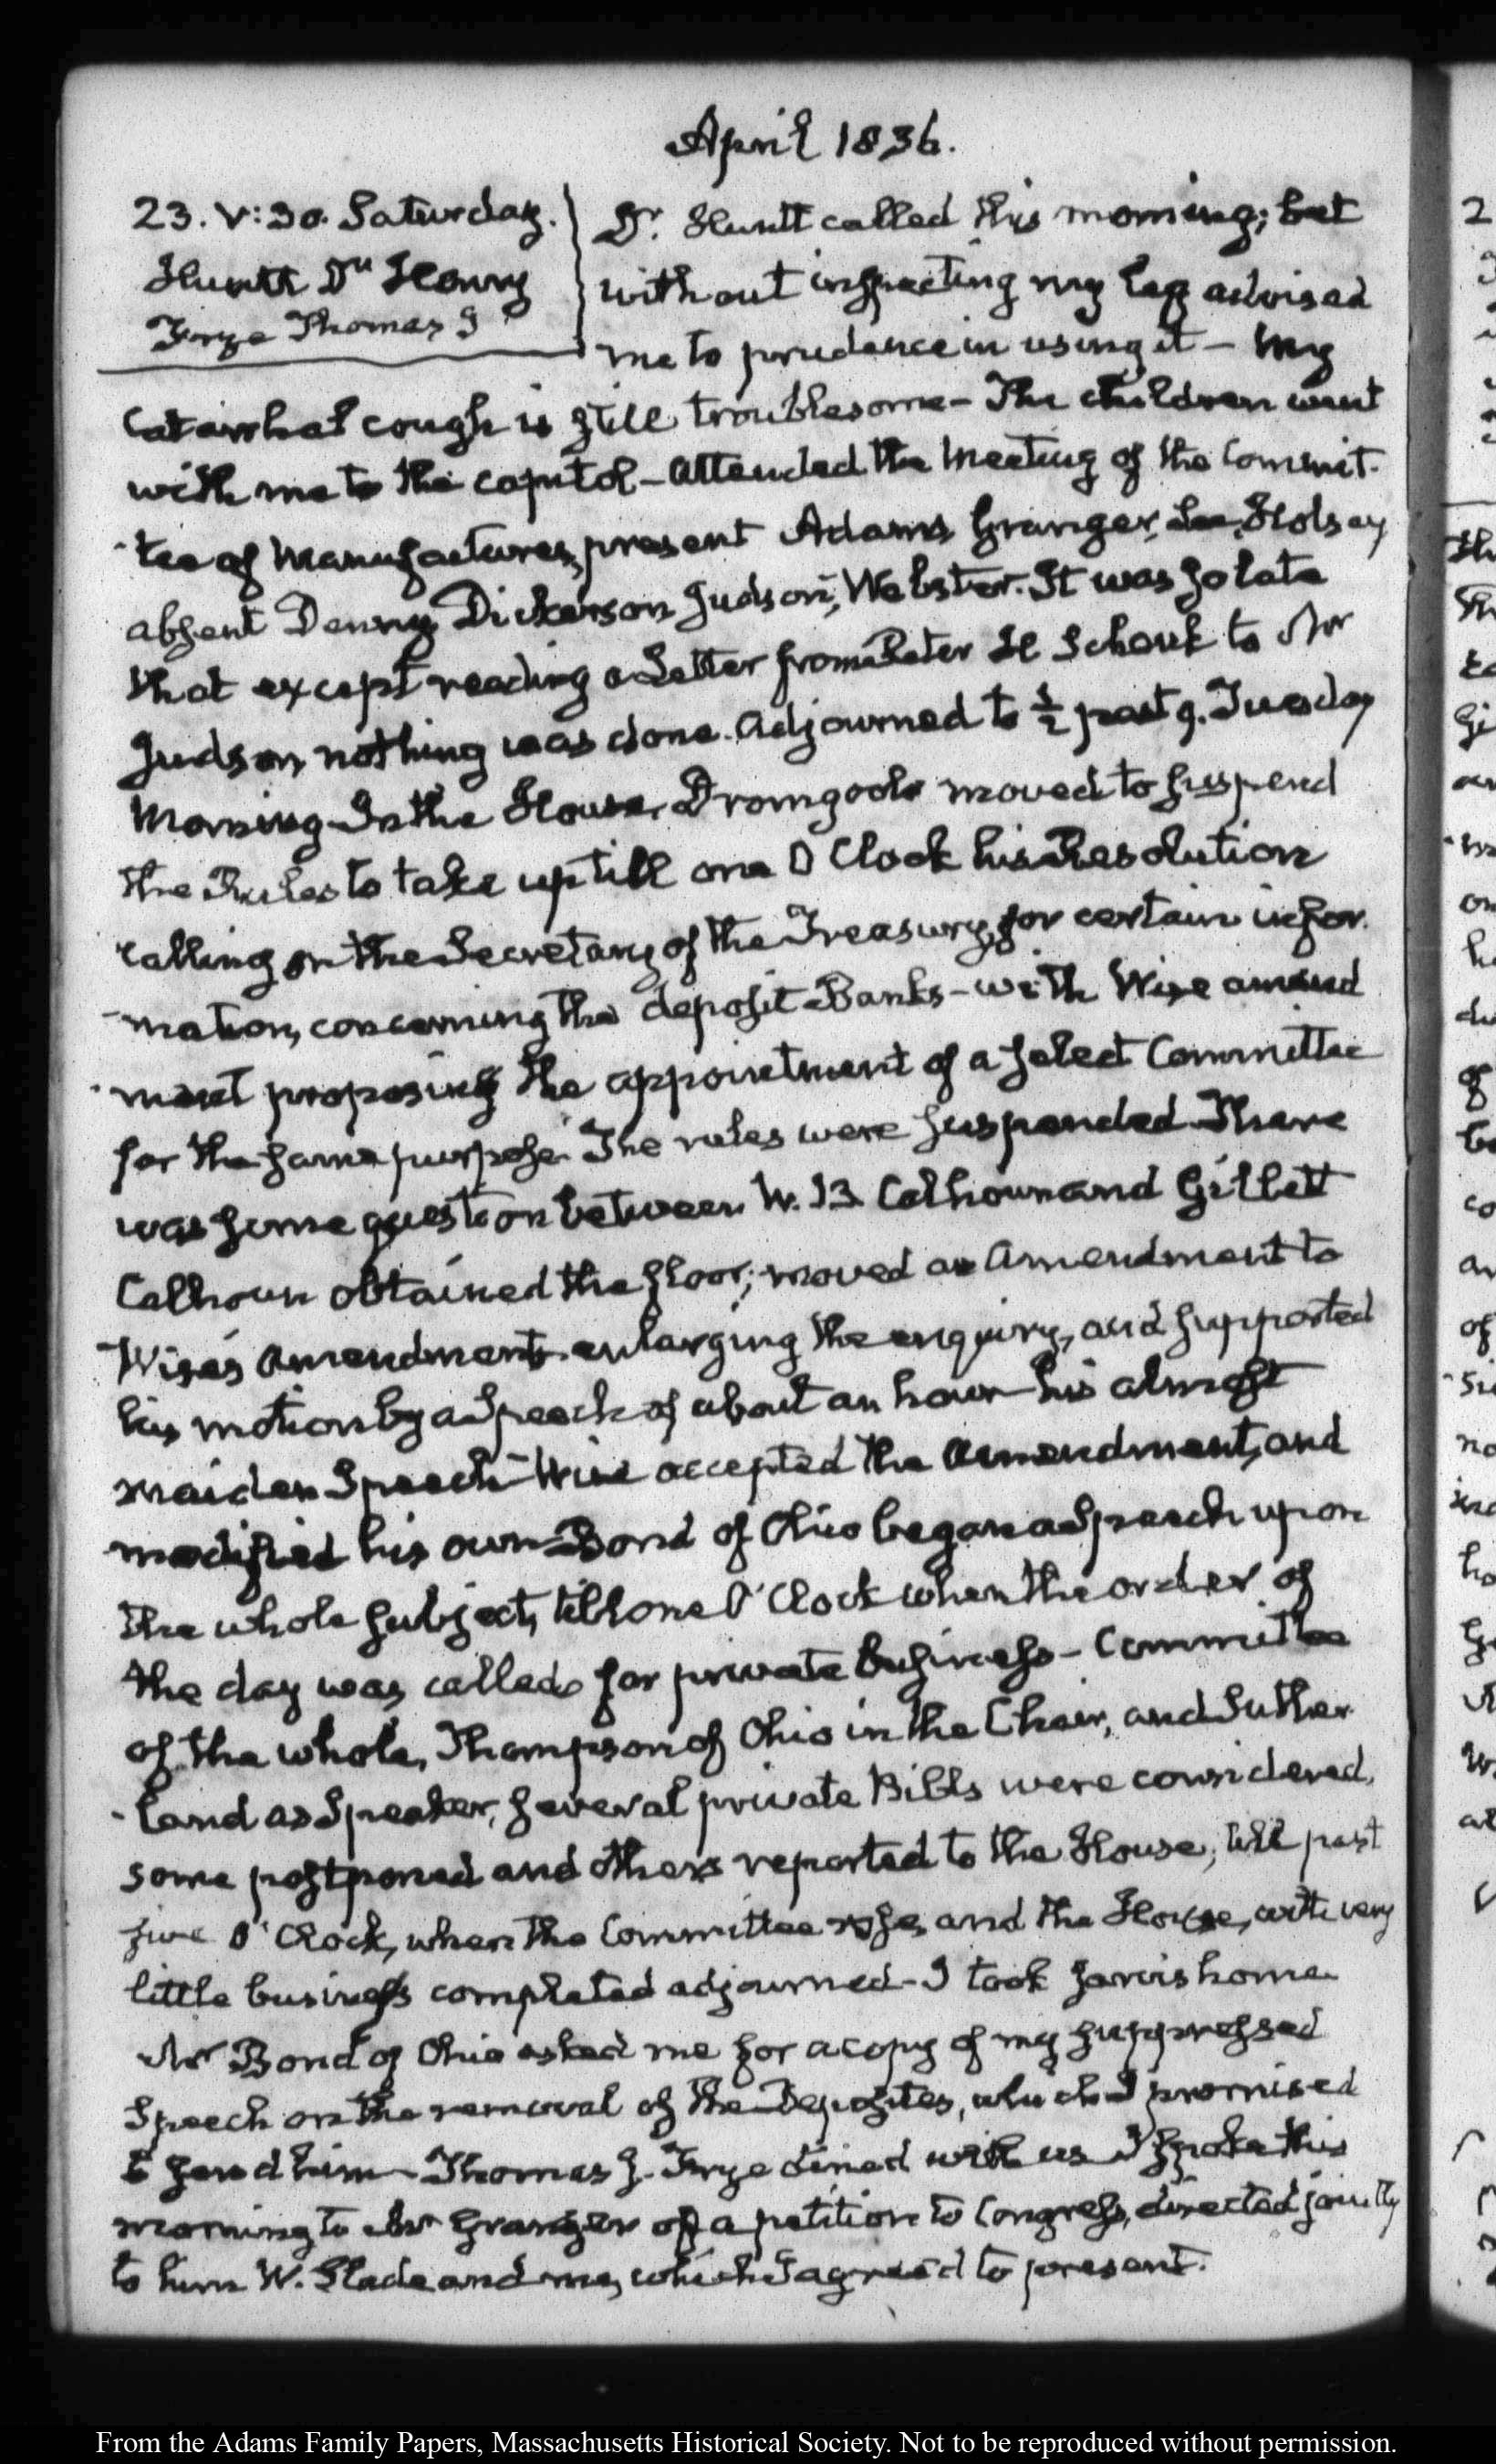 April 1836.
23. V:30. Saturday.
Huntt Dr. Henry
Frye Thomas J
Dr. Huntt called this morning; but
without inspecting my leg advised
me to prudence in using it — My
Catarrhal cough is still troublesome — The children went
with me to the Capitol — Attended the Meeting of the Commit-
tee of Manufactures, present Adams Granger, Lee, Holsey
absent Denny, Dickerson Judson, Webster. It was so late
that except reading a Letter from Peter H Schenk to Mr
Judson, nothing was done. Adjourned to ½ past 9. Tuesday
Morning — In the House, Dromgoole moved to suspend
the Rules to take up till one O Clock his Resolution
calling on the Secretary of the Treasury, for certain infor-
mation, concerning the deposit Banks — with Wise amend
ment proposing the appointment of a select Committee
for the same purpose. The rules were suspended. There
was some question between W. B. Calhoun and Gillett
Calhoun obtained the floor; moved an Amendment to
Wise's Amendment enlarging the enquiry, and supported
his motion by a Speech of about an hour — his almost
maiden Speech — Wise accepted the Amendment, and
modified his own — Bond of Ohio began a Speech upon
the whole subject, till one O'Clock when the order of
the day was called for private business — Committee
of the whole, Thompson of Ohio in the Chair, and Suther-
land as Speaker, several private Bills were considered,
some postponed and others reported to the House, till past
five O'Clock, when the Committee rose, and the House, with very
little business completed adjourned — I took Jarvis home.
Mr Bond of Ohio asked me for a copy of my suppressed
Speech on the removal of the Deposites, which I promised
to send him — Thomas J. Frye dined with us I spoke this
morning to Mr Granger of a petition to Congress, directed jointly
to him W. Slade and me, which I agreed to present.
From the Adams Family Papers, Massachusetts Historical Society. Not to be reproduced without permission.